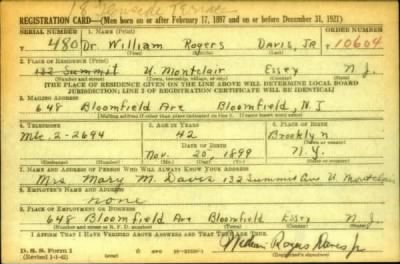 18 Terrace
REGISTRATION CARD—(Men born on or after February 17, 1897 and on or before December 31, 1921)
SERIAL NUMBER 1. NAME (Print) ORDER NUMBER
480 Dr. William Rogers Davis, Jr 10604
(First) (Middle) (Last)
2. PLACE OF RESIDENCE (Print)
132 Summit U. Montclair Essex N.J.
(Number and street) (Town, township, village, or city) (County) (State)
[THE PLACE OF RESIDENCE GIVEN ON THE LINE ABOVE WILL DETERMINE LOCAL BOARD
JURISDICTION; LINE 2 OF REGISTRATION CERTIFICATE WILL BE IDENTICAL]
3. MAILING ADDRESS
648 Bloomfield Ave Bloomfield, N.J
[Mailing address if other than place indicated on line 2. If same insert word same]
4. TELEPHONE 5. AGE IN YEARS 6. PLACE OF BIRTH
Mtc. 2-2694 42 Brooklyn
DATE OF BIRTH (Town or county)
Nov. 20, 1899 N.Y.
(Exchange) (Number) (Mo.) (Day) (Yr.) (State or country)
7. NAME AND ADDRESS OF PERSON WHO WILL ALWAYS KNOW YOUR ADDRESS
Mrs. Mary M. Davis 132 Summit Ave U. Montclair
8. EMPLOYER'S NAME AND ADDRESS
none
9. PLACE OF EMPLOYMENT OR BUSINESS
648 Bloomfield Ave Bloomfield Essex N.J.
(Number and street or R. F. D. number) (Town) (County) (State)
I AFFIRM THAT I HAVE VERIFIED ABOVE ANSWERS AND THAT THEY ARE TRUE.
D. S. S. Form 1
(Revised 1-1-42) (over) William Rogers Davis Jr.
(Registrant's signature)